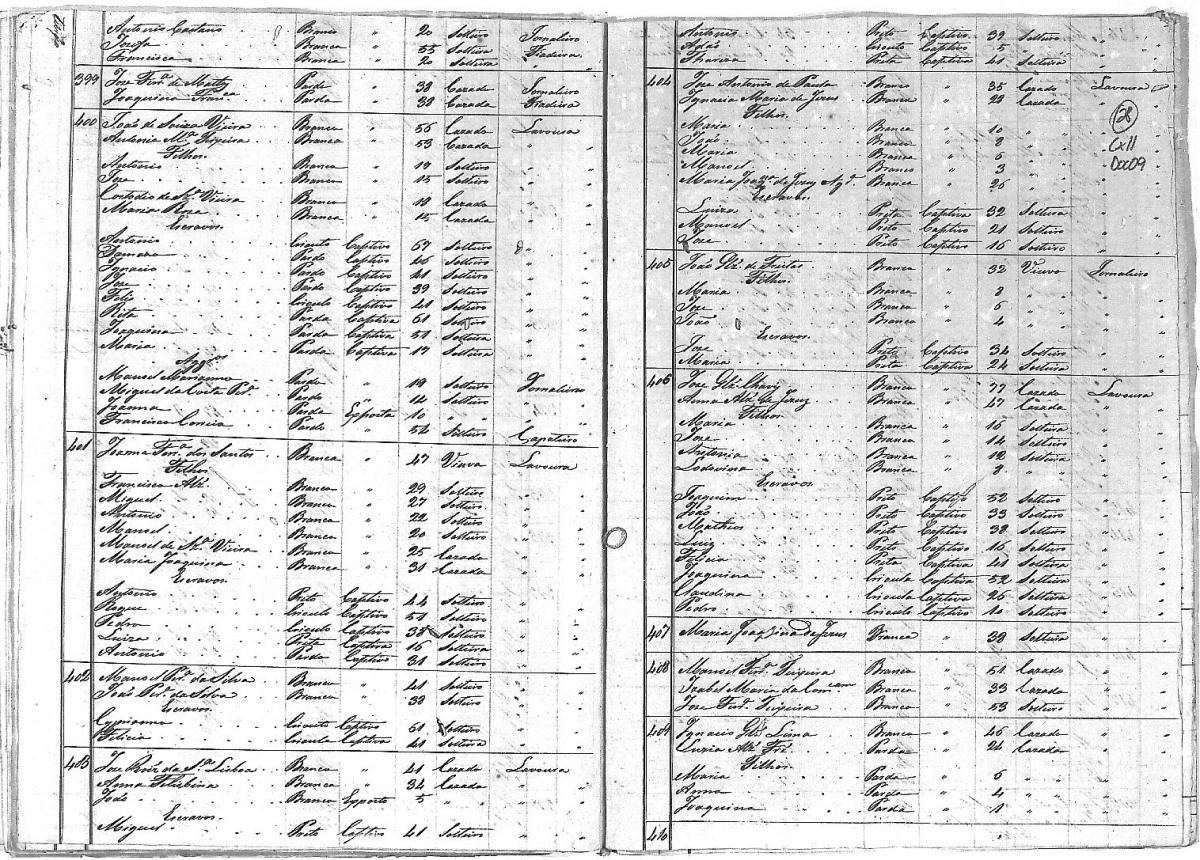 Antonio Caetano Branco " 20 Solteiro Jornaleiro
Josefa Branca " 55 Solteira Fiadeira
Francisca Branca " 20 Solteira "
399 Jose Ferr.ª de Pardo " 38 Cazado Jornaleiro
Joaquina Fran.ca Parda " 33 Cazada Fiadeira
400 João de Souza Vieira Branco " 56 Cazado Lavoura
Antonia M.ª Teixeira Branca " 53 Cazada "
Filhos
Antonio Branco " 17 Solteiro "
Jose Branco " 15 Solteiro "
Custodio de Sz.ª Vieira Branco " 19 Cazado "
Maria Roza Branca " 15 Cazada "
Escravos
Antonio Crioulo Captivo 67 Solteiro "
Damazo Pardo Captivo 46 Solteiro "
Ignacio Pardo Captivo 41 Solteiro "
Jose Pardo Captivo 39 Solteiro "
Felis Crioulo Captivo 41 Solteiro "
Rita Parda Captiva 61 Solteira "
Joaquina Parda Captiva 51 Solteira "
Maria Parda Captiva 17 Solteira "
Agg.os
Manoel Marianno Pardo " 19 Solteiro Jornaleiro
Miguel da Costa Per.ª Pardo " 14 Solteiro "
Joanna Parda Exposta 10 " "
Francisco Correia Pardo " 54 Solteiro Çapateiro
401 Joanna Ferr.ª dos Santos Branca " 47 Viuva Lavoura
Filhos
Francisco Alz.' Branco " 29 Solteiro "
Miguel Branco " 27 Solteiro "
Antonio Branco " 22 Solteiro "
Manoel Branco " 20 Solteiro "
Manoel de Sz.ª Vieira Branco " 25 Cazado "
Maria Joaquina Branca " 31 Cazada "
Escravos
Antonio Preto Captivo 44 Solteiro "
Roque Crioulo Captivo 51 Solteiro "
Pedro Crioulo Captivo 38 Solteiro "
Luiza Preta Captiva 16 Solteira "
Antonio Pardo Captivo 31 Solteiro "
402 Manoel Per.ª da Silva Branco " 41 Solteiro "
João Per.ª da Silva Branco " 33 Solteiro "
Escravos
Cyprianno Crioulo Captivo 61 Solteiro "
Felicia Crioula Captiva 41 Solteira "
403 Jose Roiz da S.ª Lisboa Branco " 41 Cazado Lavoura
Anna Branca " 34 Cazada "
João Branco Exposto 5 " "
Escravos
Miguel Preto Captivo 41 Solteiro "
Antonio Preto Captivo 39 Solteiro "
Adão Crioulo Captivo 5 " "
Thereza Preta Captiva 41 Solteira "
404 Jose Antonio de Paula Branco " 35 Cazado Lavoura
Ignacia Maria de Jezus Branca " 28 Cazada "
Filhos
Maria Branca " 10 " "
João Branco " 8 " "
Maria Branca " 6 " "
Manoel Branco " 3 " "
Maria de Jezus Ag.ª Branca " 26 " "
Escravos
Luiza Preta Captiva 32 Solteira "
Manoel Preto Captivo 21 Solteiro "
Jose Preto Captivo 16 Solteiro "
28
CXII
Doc09
405 João Glz.' de Freitas Branco " 32 Viuvo Jornaleiro
Filhos
Maria Branca " 8 " "
Jose Branco " 6 " "
João Branco " 4 " "
Escravos
Jose Preto Captivo 34 Solteiro "
Maria Preta Captiva 24 Solteira "
406 Jose Glz.' Chaves Branco " 77 Cazado Lavoura
Anna Alz.' de Jezus Branca " 47 Cazada "
Filhos
Maria Branca " 16 Solteira "
Jose Branco " 14 Solteiro "
Antonia Branca " 12 Solteira "
Lodovina Branca " 8 " "
Escravos
Joaquim Preto Captivo 52 Solteiro "
João Preto Captivo 33 Solteiro "
Matheus Preto Captivo 38 Solteiro "
Luiz Preto Captivo 16 Solteiro "
Felicia Preta Captiva 41 Solteira "
Joaquina Crioula Captiva 52 Solteira "
Claudina Crioula Captiva 26 Solteira "
Pedro Crioulo Captivo 10 Solteiro "
407 Maria Joaquina de Jezus Branca " 38 Solteira "
408 Manoel Ferr.ª Teixeira Branco " 51 Cazado "
Izabel Maria da Branca " 33 Cazada "
Jose Ferr.ª Teixeira Branco " 53 Solteiro "
409 Ignacio Glz.' Lima Branco " 46 Cazado "
Luzia Alz.' Parda " 24 Cazada "
Filhos
Maria Parda " 6 " "
Anna Parda " 4 " "
Joaquina Parda " 1 " "
410